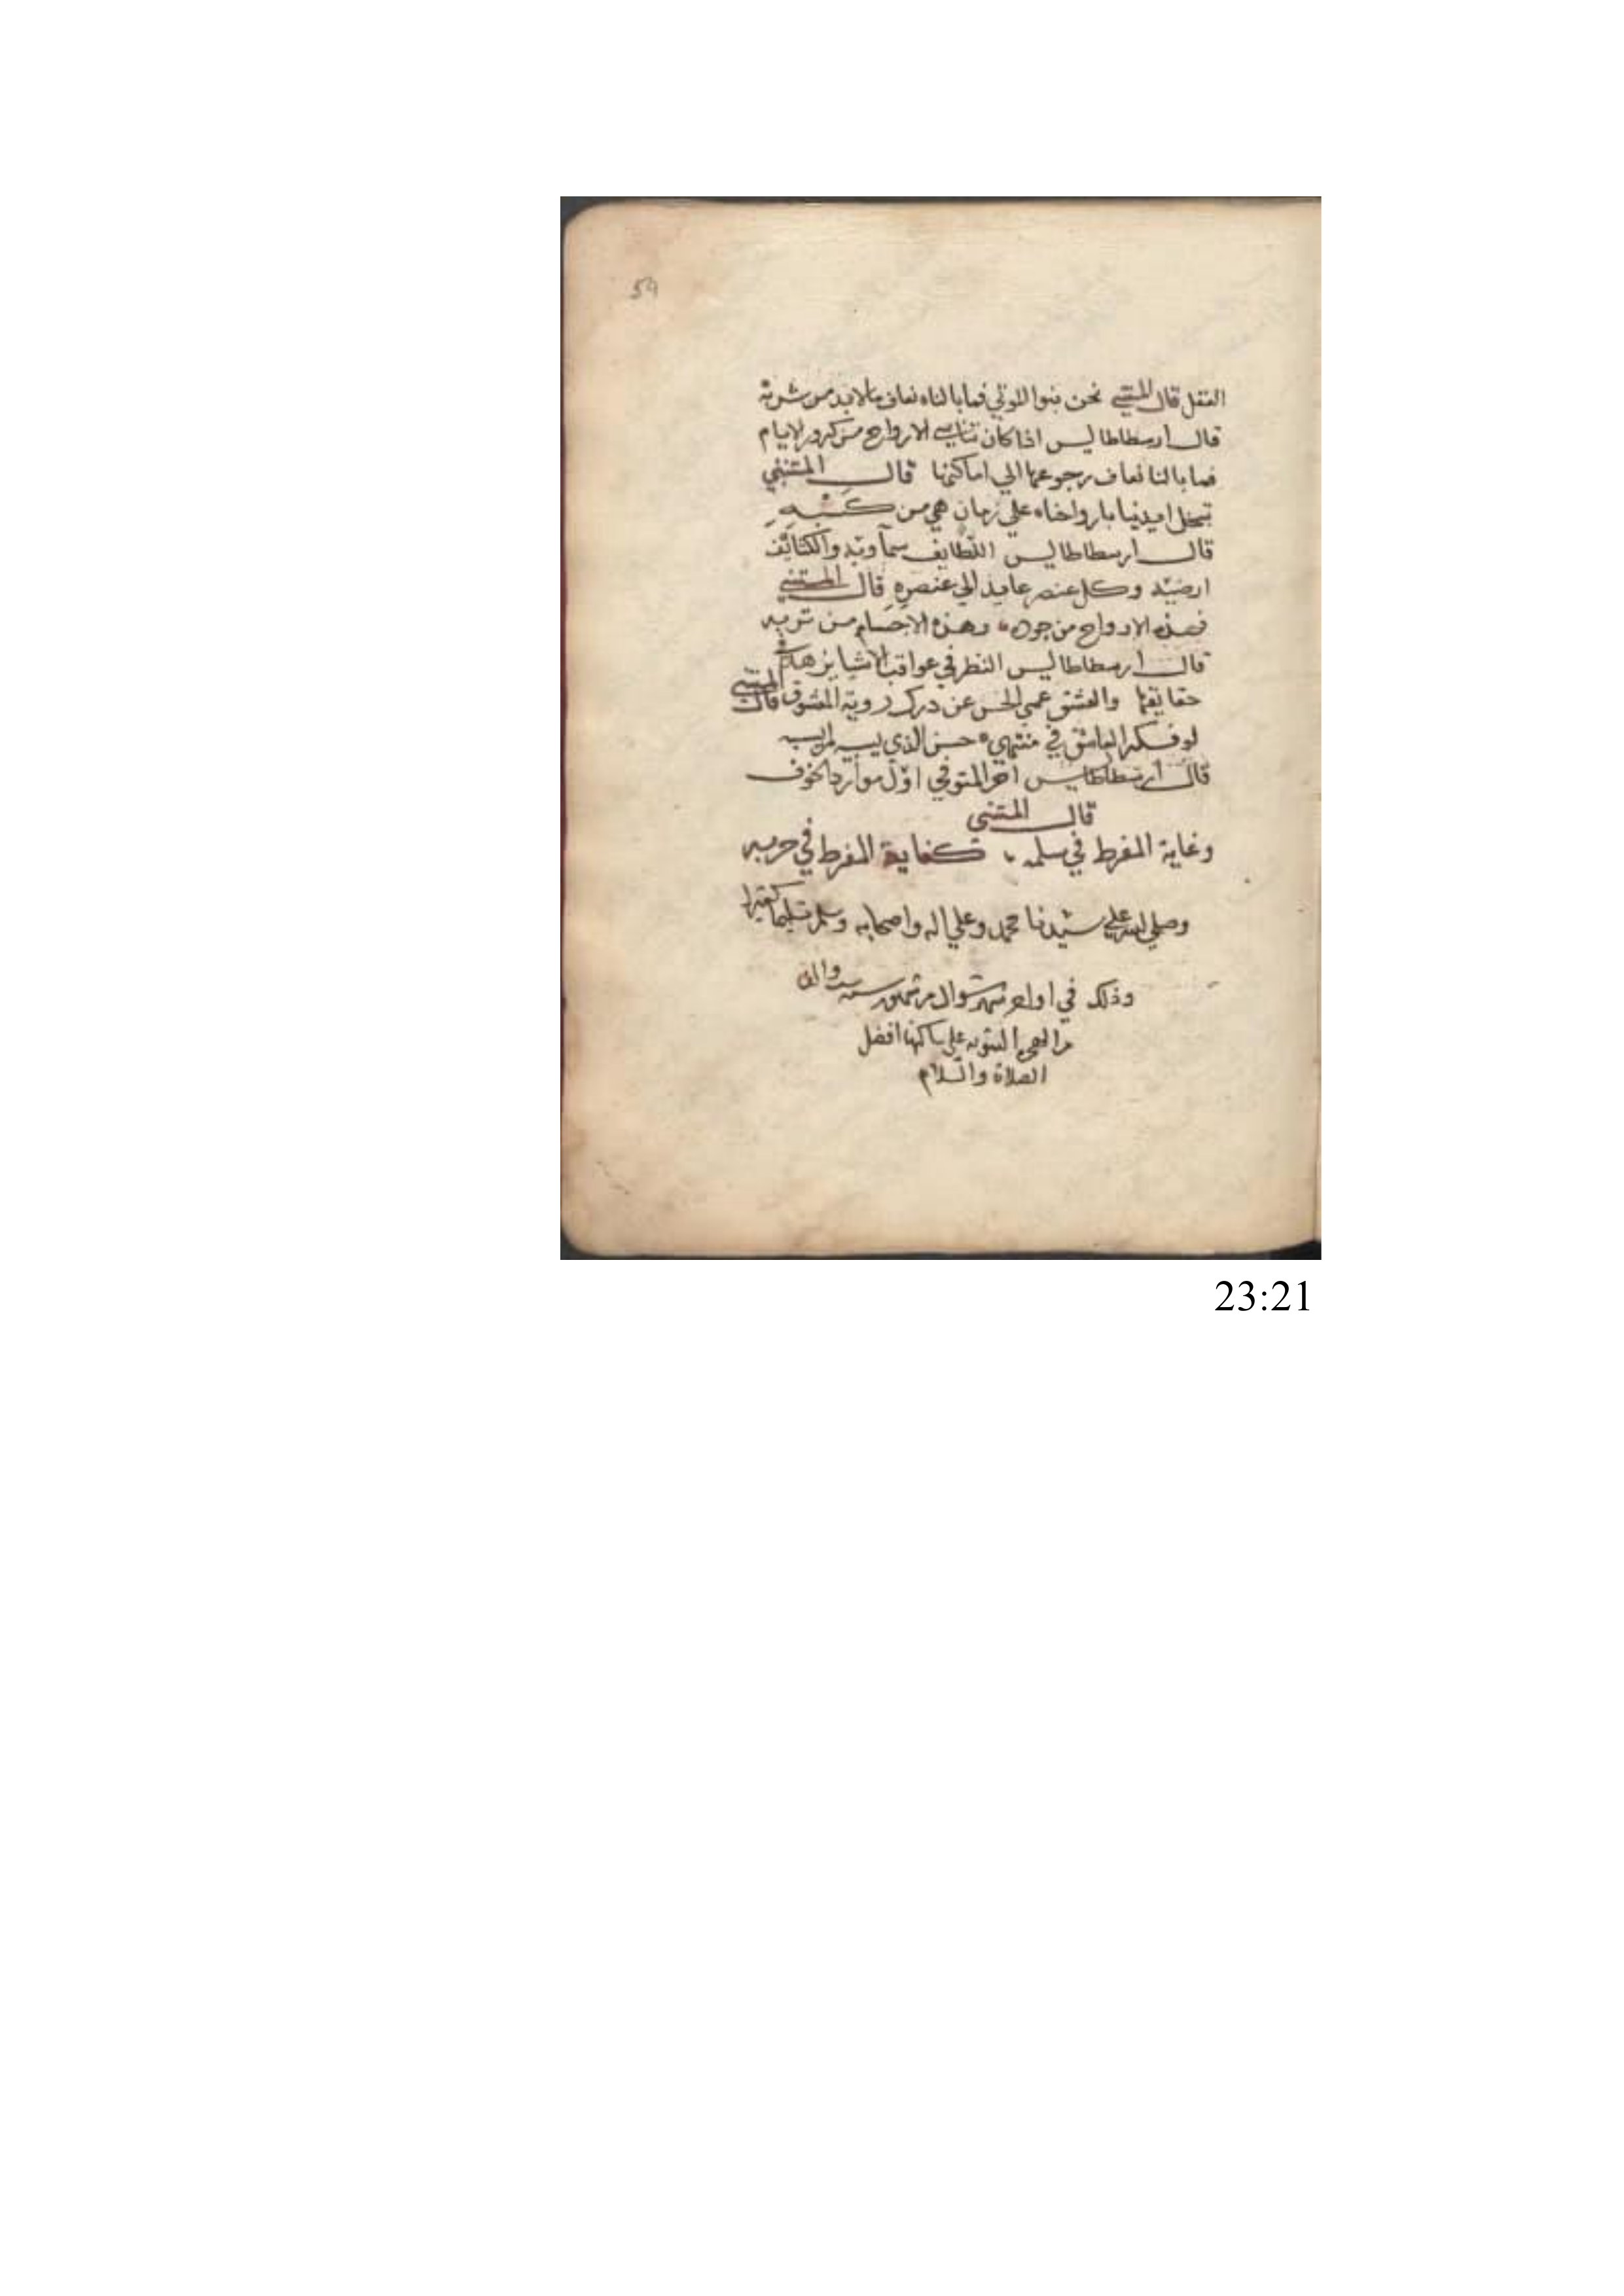 54
العقل قال المتنبي نحن بنوا الموتي فما بالنا ه نعاف مالابد من شربه
قال ارسطاطاليس اذا كان تناسي الارواح من كرور الايام
فما بالنا نعاف رجوعها الي اماكنها قال المتنبي
تبخل ايدينا بارواحنا ه علي زمان هي من كسبه
قال ارسطاطاليس اللطايف سماويه والكثائف
ارضيه وكل عنصر عايد الي عنصره قال المتنبي
فهذه الارواح من جوه وهذه الاجسام من تربه
قال ارسطاطاليس النظر في عواقب الاشيا يزهد في
حقايقها والعشق عمي الحس عن درك روية المعشوق قال المتنبي
لو فكر العاشق في منتهي ه حسن الذي يسبيه لم يسبه
قال ارسطاطاليس اخر التوقي اول موارد الخوف
قال المتنبي
وغاية المفرط في سلمه كغاية المفرط في حربه
وصلي الله علي سيدنا محمد وعلي اله واصحابه وسلم تسليما كثيرا
وذلك في اواخر شهر شوال من شهور سنه والف
من الهجرة النبويه علي ساكنها افضل
الصلاة والسلام
23:21